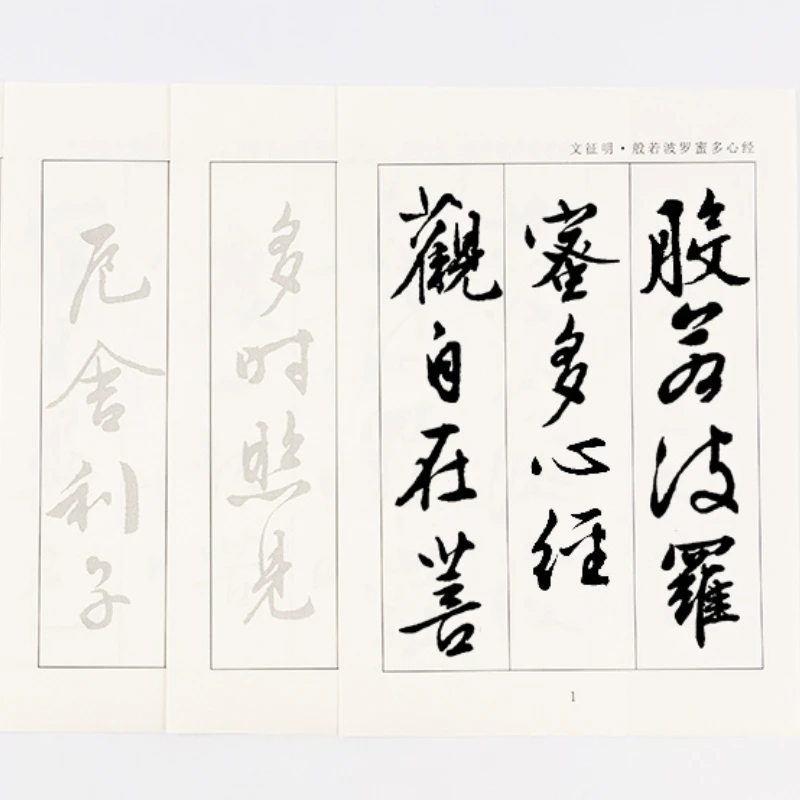 文征明·般若波罗蜜多心经
般若波羅
蜜多心經
觀自在菩
1
多时照見
厄舍利子